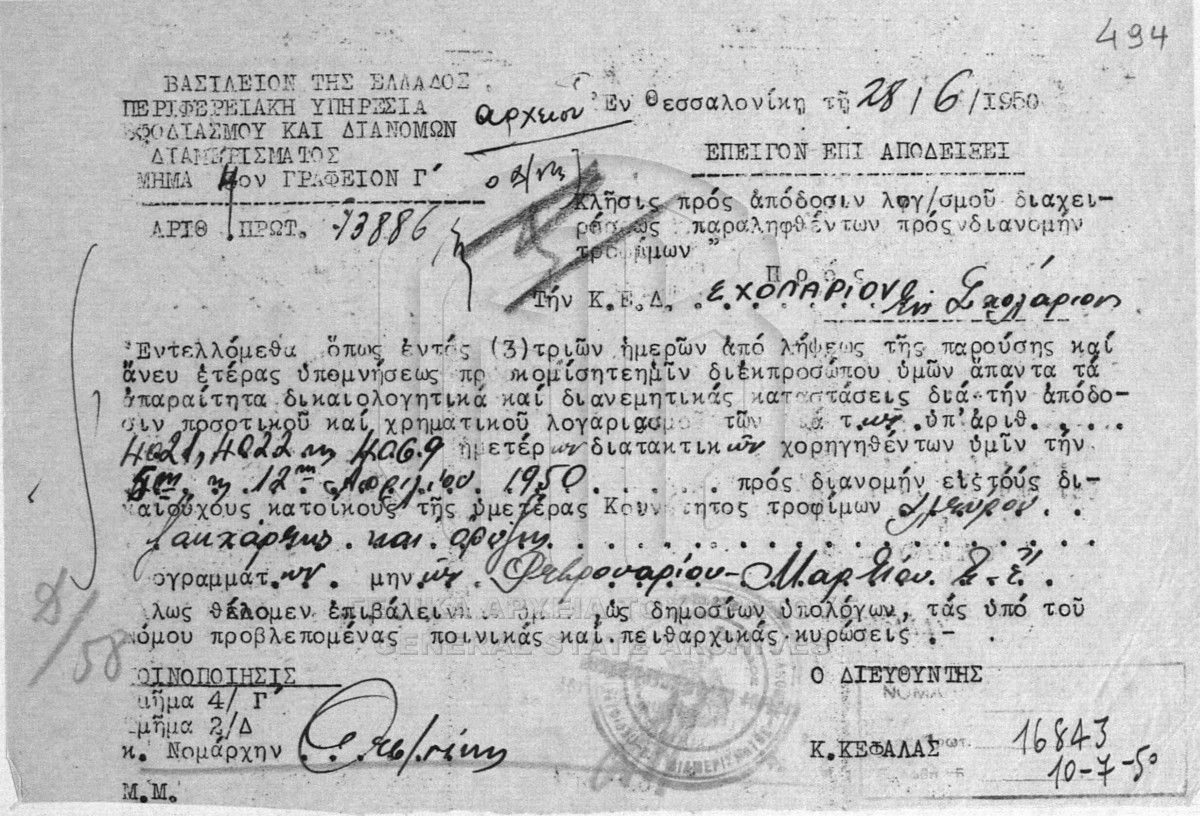 494
ΒΑΣΙΛΕΙΟΝ ΤΗΣ ΕΛΛΑΔΟΣ
ΠΕΡΙΦΕΡΕΙΑΚΗ ΥΠΗΡΕΣΙΑ
ΕΦΟΔΙΑΣΜΟΥ ΚΑΙ ΔΙΑΝΟΜΩΝ
ΔΙΑΜΕΡΙΣΜΑΤΟΣ
ΜΗΜΑ 4ον ΓΡΑΦΕΙΟΝ Γ΄
ΑΡΙΘ. ΠΡΩΤ. 73886
αρχείον
Ἐν Θεσσαλονίκῃ τῇ 28/6/1950
ΕΠΕΙΓΟΝ ΕΠΙ ΑΠΟΔΕΙΞΕΙ
Κλῆσις πρός ἀπόδοσιν λογ/σμοῦ διαχει-
ρίσεως παραληφθέντων πρός διανομήν
τροφίμων"
Πρός
Τήν Κ.Ε.Δ. ΣΧΟΛΑΡΙΟΥ εις Σχολάριον
Ἐντελλόμεθα ὅπως ἐντός (3)τριῶν ἡμερῶν ἀπό λήψεως τῆς παρούσης καί
ἄνευ ἑτέρας ὑπομνήσεως προσκομίσητεἡμῖν διἐκπροσώπου ὑμῶν ἅπαντα τά
ἀπαραίτητα δικαιολογητικά καί διανεμητικάς καταστάσεις διά τήν ἀπόδο-
σιν ποσοτικοῦ καί χρηματικοῦ λογαριασμοῦ τῶν κατά τ. ὑπ'ἀριθ. . . .
4021,4022 κ 4069 ἡμετέρων διατακτικῶν χορηγηθέντων ὑμῖν τήν
5ην κ 12ην Απριλίου 1950 . . . . . πρός διανομήν εἰςτούς δι-
καιούχους κατοίκους τῆς ὑμετέρας Κοινότητος τροφίμων Αλεύρου . .
Σακχάρεως και όρυζης . . . . . . . . . . . . . . . . . . . . .
ογραμματ. μηνῶν Φεβρουαρίου-Μαρτίου Ε.Ε.
λως θέλομεν ἐπιβάλει ὡς δημοσίων ὑπολόγων, τάς ὑπό τοῦ
νόμου προβλεπομένας ποινικάς καί πειθαρχικάς κυρώσεις.-
ΓΕΝΙΚΑ ΑΡΧΕΙΑ ΤΟΥ
GENERAL STATE ARCHIVES
ΟΙΝΟΠΟΙΗΣΙΣ
μῆμα 4/ Γ΄
μῆμα 2/Δ
κ. Νομάρχην
Μ.Μ.
Ο ΔΙΕΥΘΥΝΤΗΣ
Κ.ΚΕΦΑΛΑΣ
16843
10-7-50